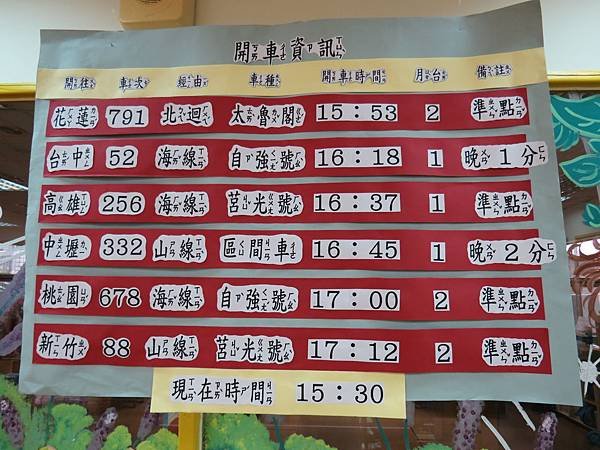 開車資訊
開往 車次 經由 車種 開車時間 月台 備註
花蓮 791 北迴 太魯閣 15:53 2 準點
台中 52 海線 自強號 16:18 1 晚1分
高雄 256 海線 莒光號 16:37 1 準點
中壢 332 山線 區間車 16:45 1 晚2分
桃園 678 海線 自強號 17:00 2 準點
新竹 88 山線 莒光號 17:12 2 準點
現在時間 15:30